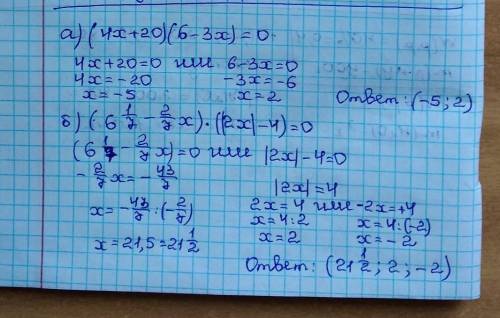 а) (4x+20)(6-3x)=0
4x+20=0 или 6-3x=0
4x=-20 -3x=-6
x=-5 x=2 Ответ: (-5; 2)
б) (6 1/7 - 2/7 x) · (|2x|-4)=0
(6 1/7 - 2/7 x)=0 или |2x|-4=0
- 2/7 x = - 43/7 |2x|=4
x= - 43/7 : (- 2/7) 2x=4 или -2x=+4
x=4:2 x=4:(-2)
x=21,5=21 1/2 x=2 x=-2
Ответ: (21 1/2; 2; -2)